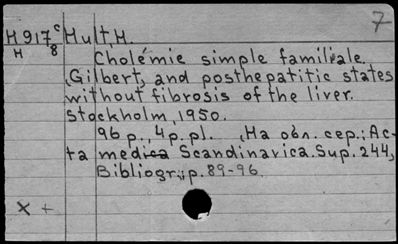 7
H917 c Hult H.
H 8 Cholémie simple familiale,
(Gilbert) and posthepatitic states
without fibrosis of the liver.
Stockholm, 1950.
96 p., 4 p. pl. (На обл. сер.: Ac-
ta medica Scandinavica. Sup. 244)
Bibliogr.: p. 89-96.
X +